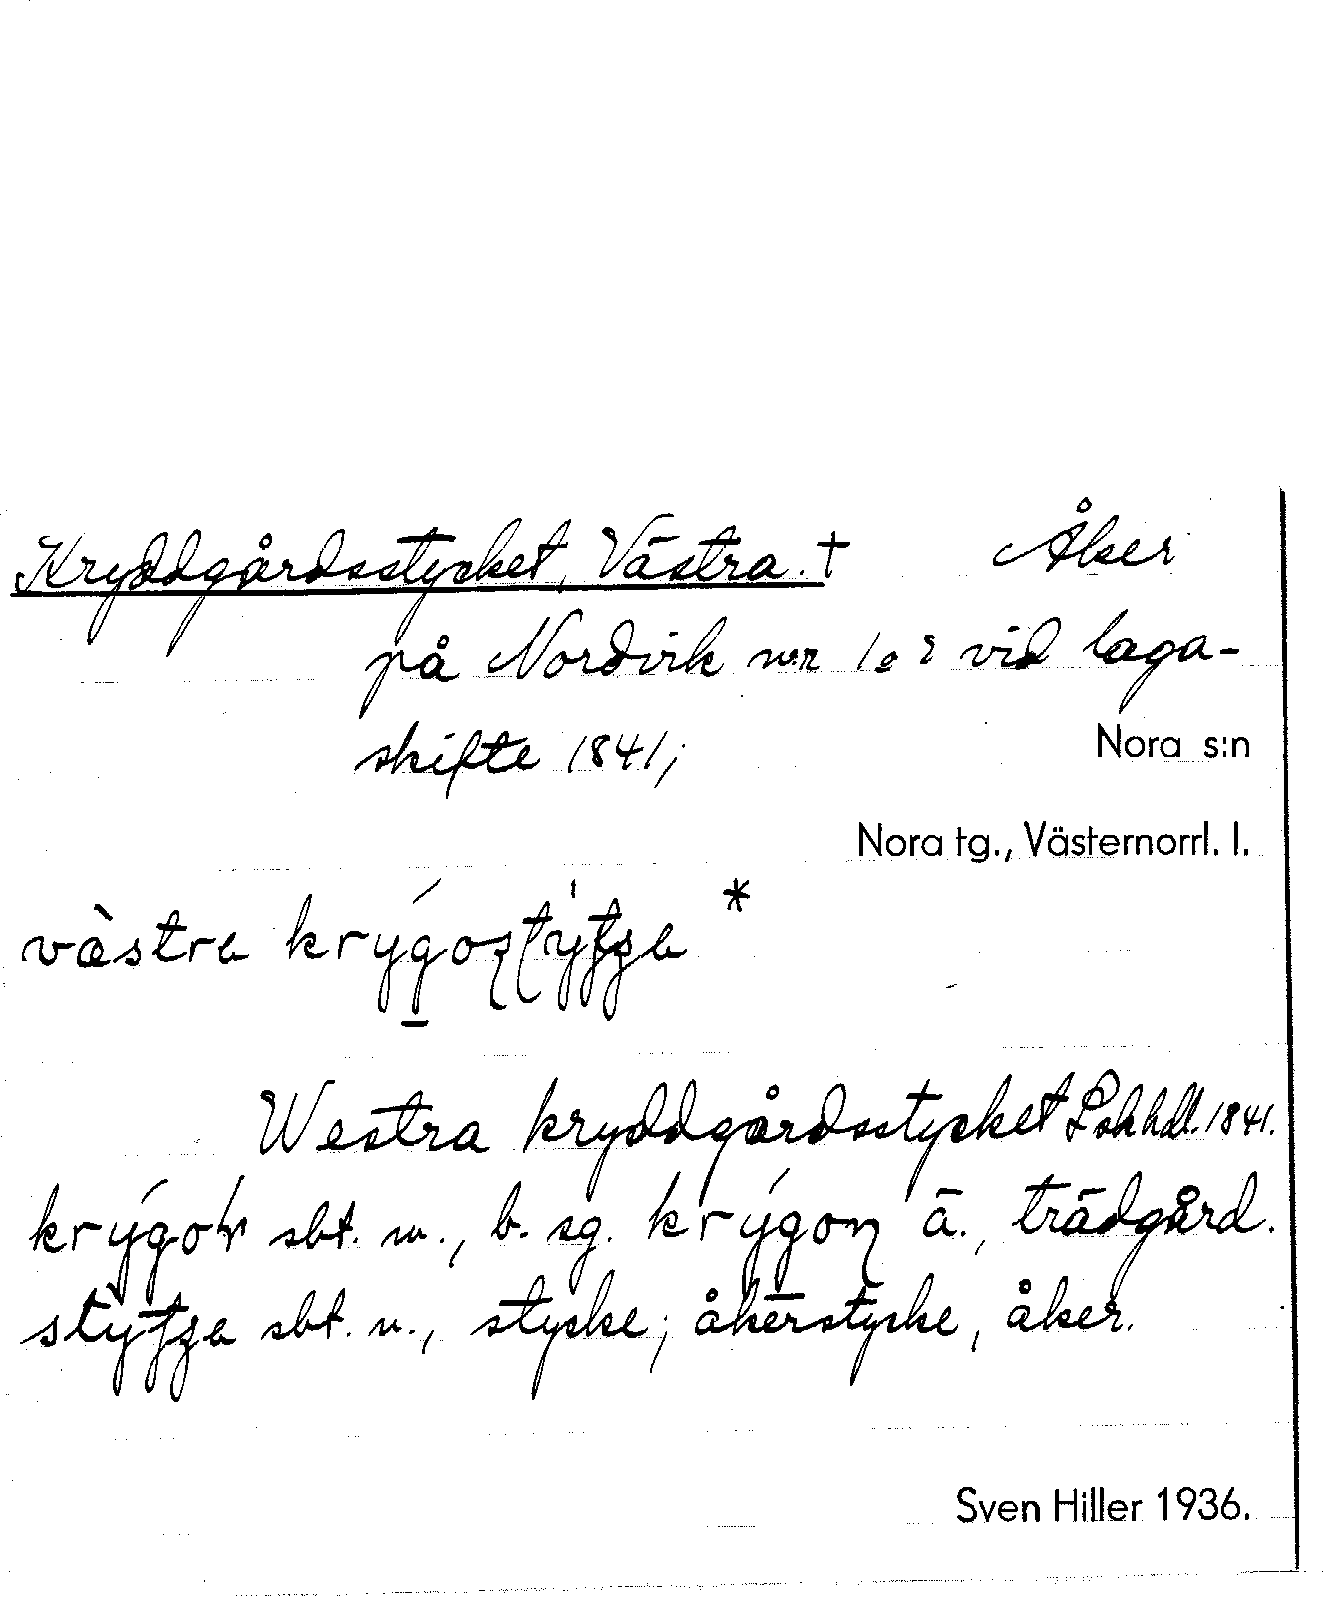 Kryddgårdsstycket, Västra. † Åker
på Nordvik n:r 1 o 2 vid laga-
skifte 1841;
Nora s:n
Nora tg., Västernorrl. l.
västra
Westra kryddgårdsstycket Lskhdl. 1841.
sbt. m., b. sg. ä., trädgård.
sbt. n., stycke; åkerstycke, åker.
Sven Hiller 1936.